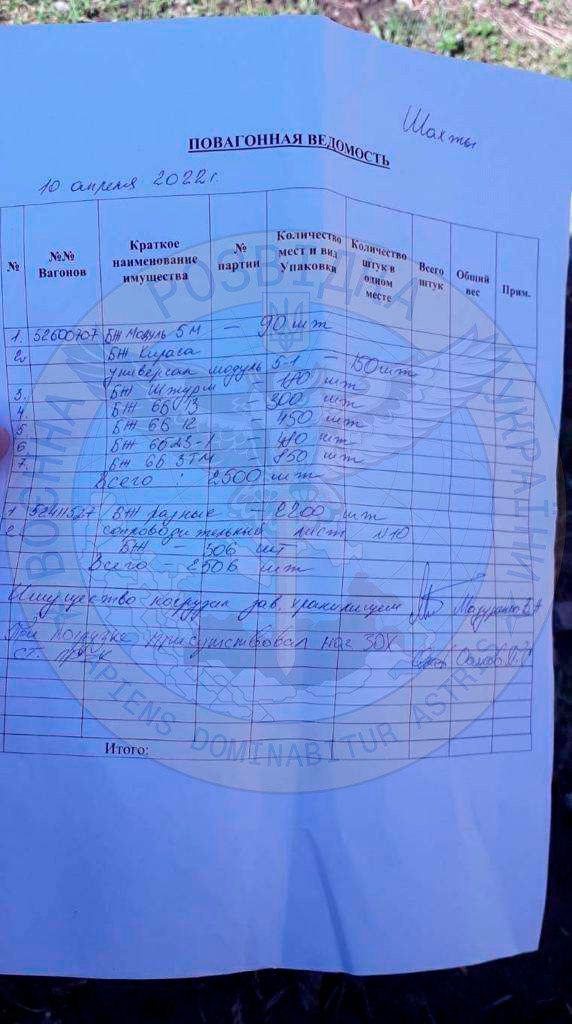 Шахты
ПОВАГОННАЯ ВЕДОМОСТЬ
10 апреля 2022г.
№ №№ Вагонов Краткое наименование имущества № партии Количество мест и вид Упаковки Количество штук в одном месте Всего штук Общий вес Прим.
1. 52600707 БЖ Модуль 5М — 90 шт
2. БЖ Кираса
универсал модуль 5-1 — 150 шт
3. БЖ Штурм — шт
4 БЖ 6Б13 — 300 шт
5 БЖ 6Б12 — 450 шт
6 БЖ 6Б23-1 шт
7. БЖ 6Б 3ТМ — 850 шт
Всего : 2500 шт
1 БЖ разные — 2200 шт
2. сопроводительный лист №10
БЖ — 306 шт
Всего — 2506 шт
Имущество погрузил зав. хранилищем
При погрузке присутствовал нач ЗОХ
ст. пр-к
Итого:
ВОЄННА РОЗВІДКА УКРАЇНИ
SAPIENS DOMINABITUR ASTRIS